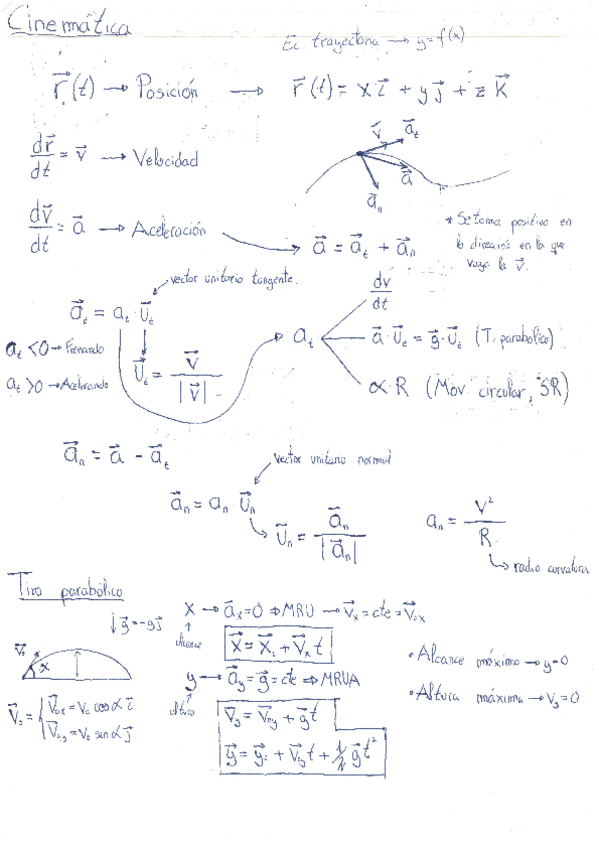 Cinemática
Ec trayectoria → y=f(x)
r⃗(t) → Posición → r⃗(t) = x i⃗ + y j⃗ + z k⃗
v⃗ a⃗t
a⃗
a⃗n
dr⃗/dt = v⃗ → Velocidad
dv⃗/dt = a⃗ → Aceleración
a⃗ = a⃗t + a⃗n
* Se toma positivo en
la dirección en la que
vaya la v⃗.
vector unitario tangente.
a⃗t = at · u⃗t
at < 0 → Frenando
at > 0 → Acelerando
u⃗t = v⃗/|v⃗|
at
dv/dt
a⃗·u⃗t = g⃗·u⃗t (T. parabólico)
α·R (Mov circular, SR)
a⃗n = a⃗ - a⃗t
vector unitario normal
a⃗n = an u⃗n
u⃗n = a⃗n/|a⃗n|
an = v²/R
radio curvatura
Tiro parabólico
↓g⃗ = -gj
v⃗o
α
v⃗o = { v⃗ox = vo cos α i⃗
v⃗oy = vo sin α j⃗
x → a⃗x = 0 ⇒ MRU → v⃗x = cte = v⃗ox
alcance
x⃗ = x⃗o + v⃗x t
y → a⃗y = g⃗ = cte ⇒ MRUA
altura
v⃗y = v⃗oy + g⃗t
y⃗ = y⃗o + v⃗oy t + 1/2 g⃗t²
• Alcance máximo → y=0
• Altura máxima → vy=0